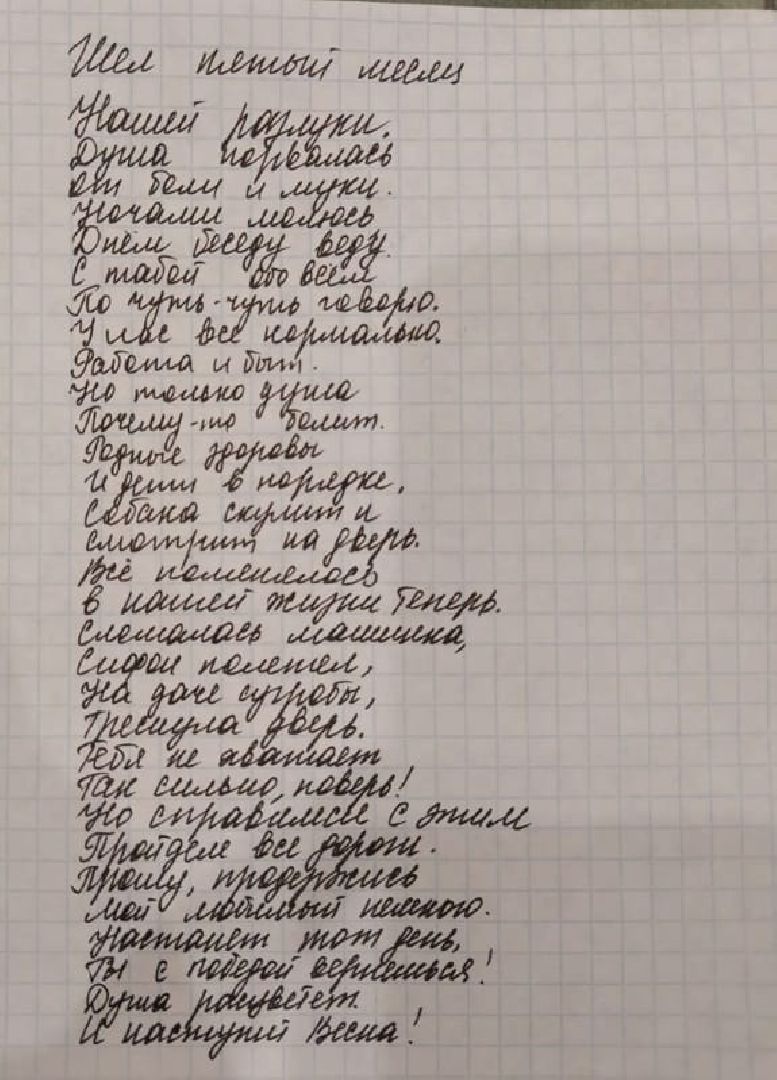 Шел пятый месяц
Нашей разлуки.
Душа порвалась
от боли и муки.
Ночами молюсь
Днём беседу веду.
С табой обо всём
По чуть-чуть говорю.
У нас все нормально.
Работа и быт.
Но только душа
Почему-то болит.
Родные здоровы
И дети в порядке,
Собака скулит и
смотрит на дверь.
Всё поменялось
в нашей жизни теперь.
Сломалась машинка,
Сифон полетел,
На даче сугробы,
Треснула дверь.
Тебя не хватает
Так сильно, поверь!
Но справимся с этим
Пройдем все дороги.
Прошу, продержись
мой любимый немного.
Настанет тот день,
Ты с победой вернешься!
Душа расцветет
И наступит Весна!